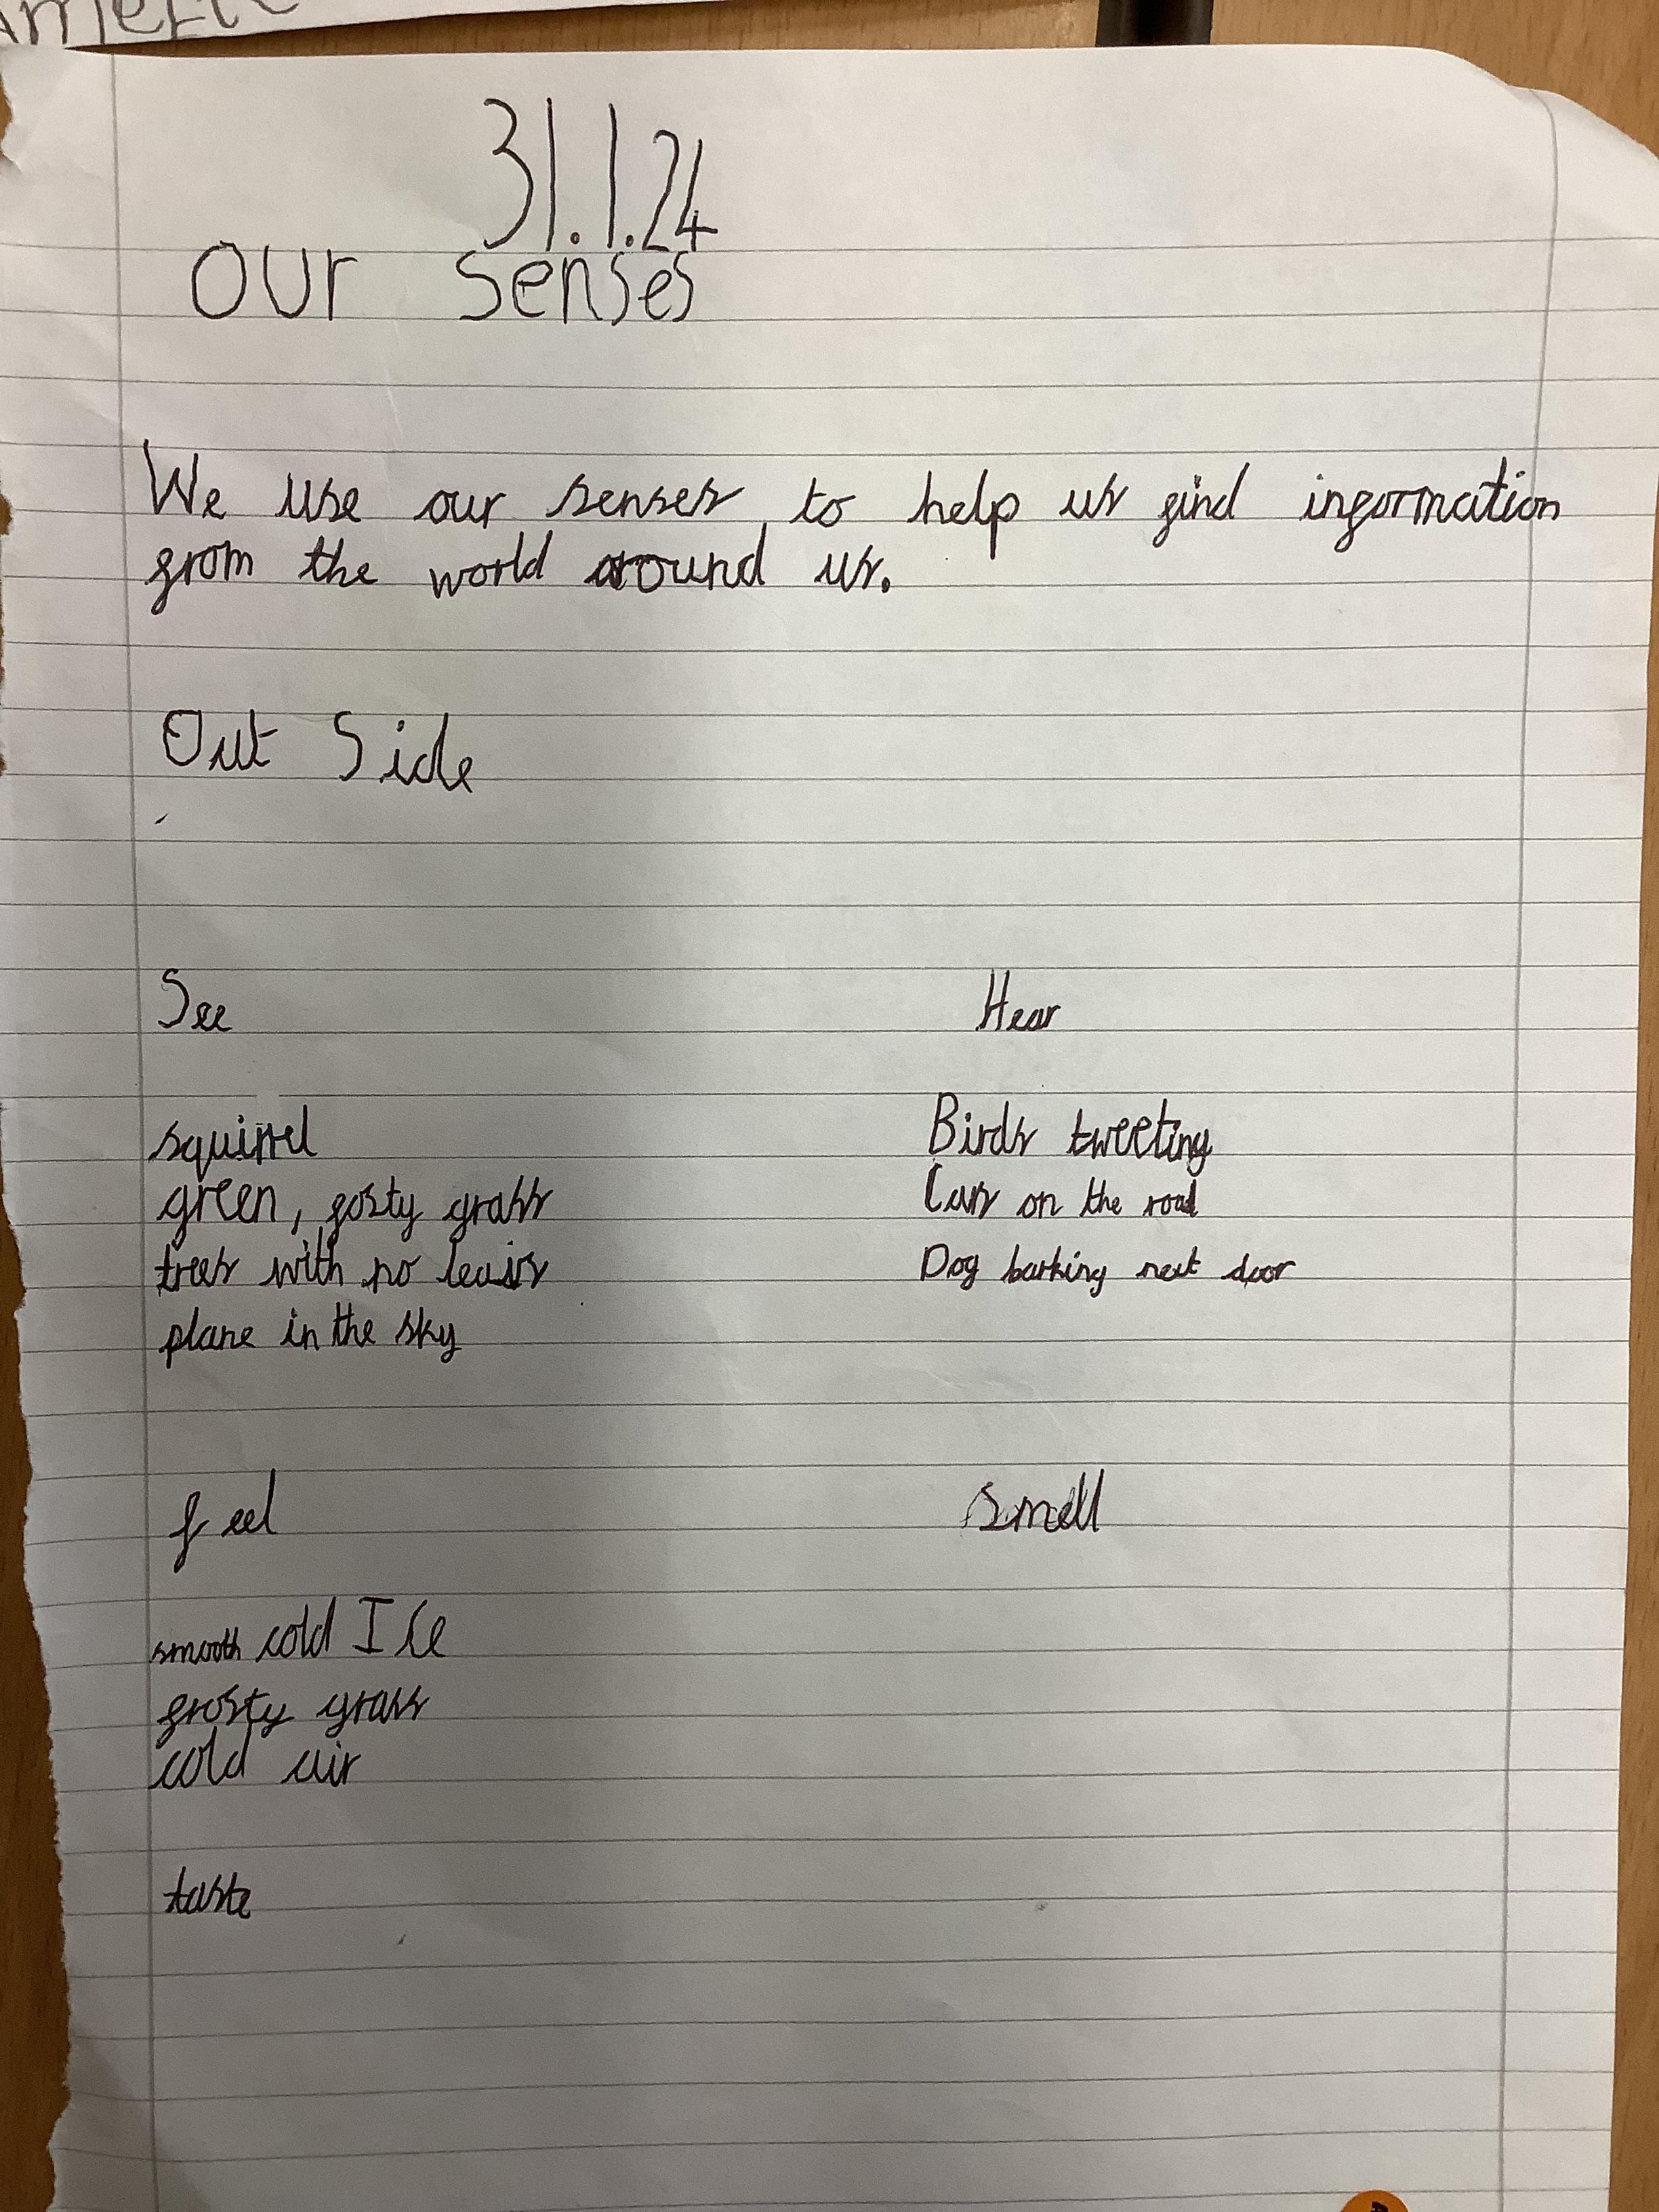 31.1.24
our senses
We use our senses, to help us find information
from the world around us.
Out Side
See
Hear
squirrel
Birds tweeting
green, fosty grass
Cars on the road
trees with no leaivs
Dog barking next door
plane in the sky
feel
Smell
smooth cold Ice
frosty grass
cold air
taste